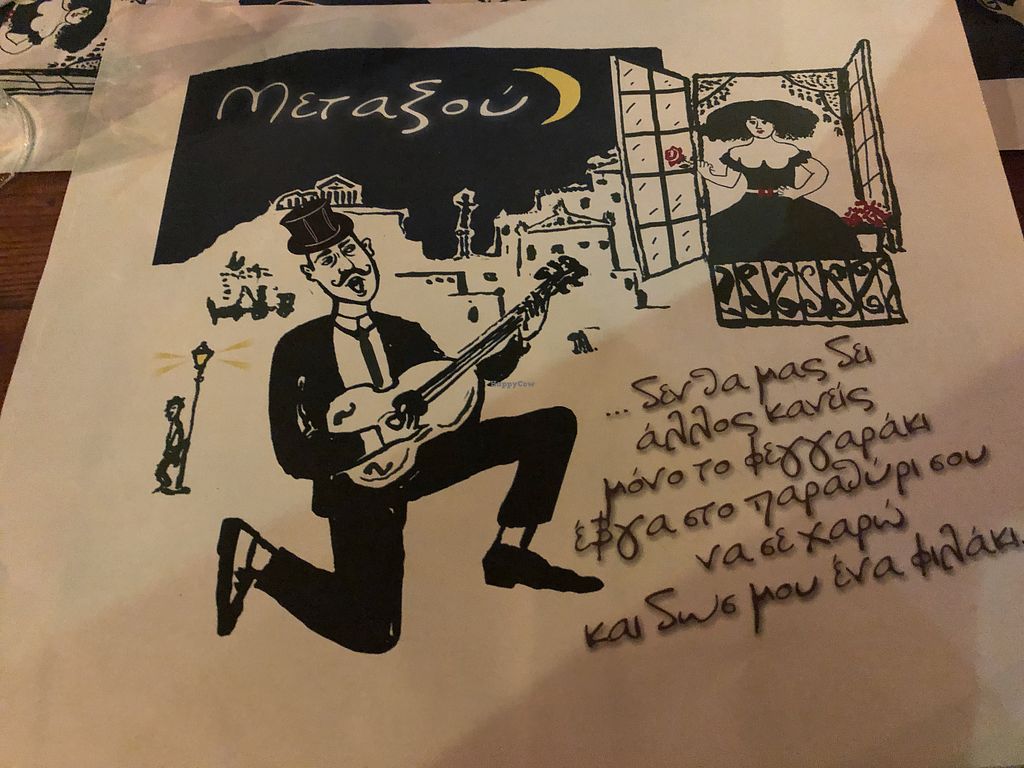 Μεταξού
HappyCow
... δεν θα μας δει
άλλος κανείς
μόνο το φεγγαράκι
έβγα στο παραθύρι σου
να σε χαρώ
και δωσ μου ένα φιλάκι.